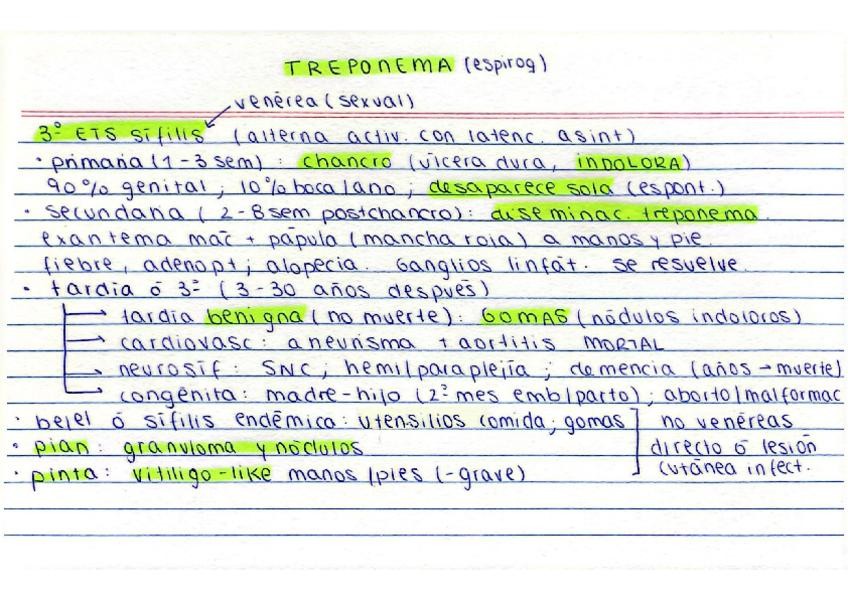 TREPONEMA (espirog)
venérea (sexual)
3º ETS sífilis (alterna activ. con latenc. asint)
· primaria (1-3 sem) : chancro (úlcera dura, INDOLORA)
90% genital ; 10% boca/ano ; desaparece sola (espont.)
· secundaria ( 2-8 sem postchancro) : diseminac. treponema.
exantema mac + pápula (mancha roja) a manos y pie.
fiebre, adenopt ; alopecia. Ganglios linfát. se resuelve.
· tardía ó 3º (3-30 años después)
→ tardía benigna (no muerte) : GOMAS (nódulos indoloros)
→ cardiovasc : aneurisma + aortitis MORTAL
→ neurosíf : SNC ; hemi/paraplejía ; demencia (años → muerte)
→ congénita : madre-hijo (2º mes emb/parto) ; aborto/malformac
· bejel ó sífilis endémica : utensilios comida ; gomas
· pian : granuloma y nódulos
· pinta : vitiligo-like manos /pies (-grave)
no venéreas
directo ó lesión
cutánea infect.